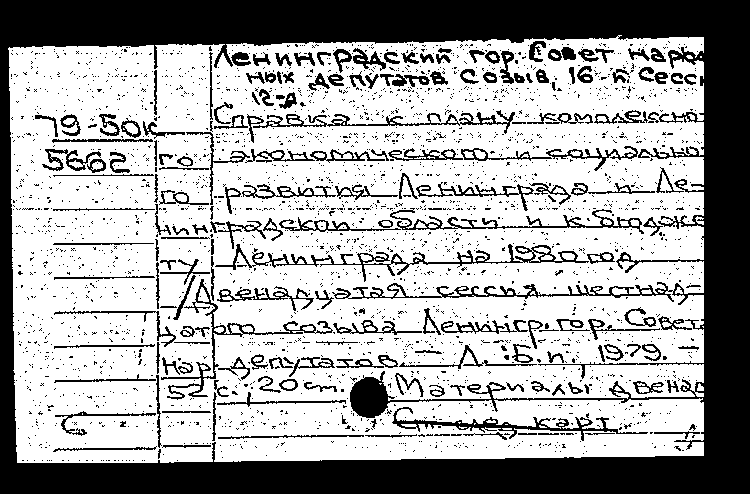 Ленинградский гор. Совет народ
ных депутатов Созыв, 16-й Сесс
12-я.
Справка к плану комплексно-
79-50к
5662 го экономического и социально
го развития Ленинграда и Ле-
нинградской области и к бюдже
ту Ленинграда на 1980 год
/Двенадцатая сессия шестнад-
цатого созыва Ленингр. гор. Совет
нар. депутатов. — Л. : Б. и., 1979. —
52 с.; 20 см. (Материалы Двенад
С См. след карт